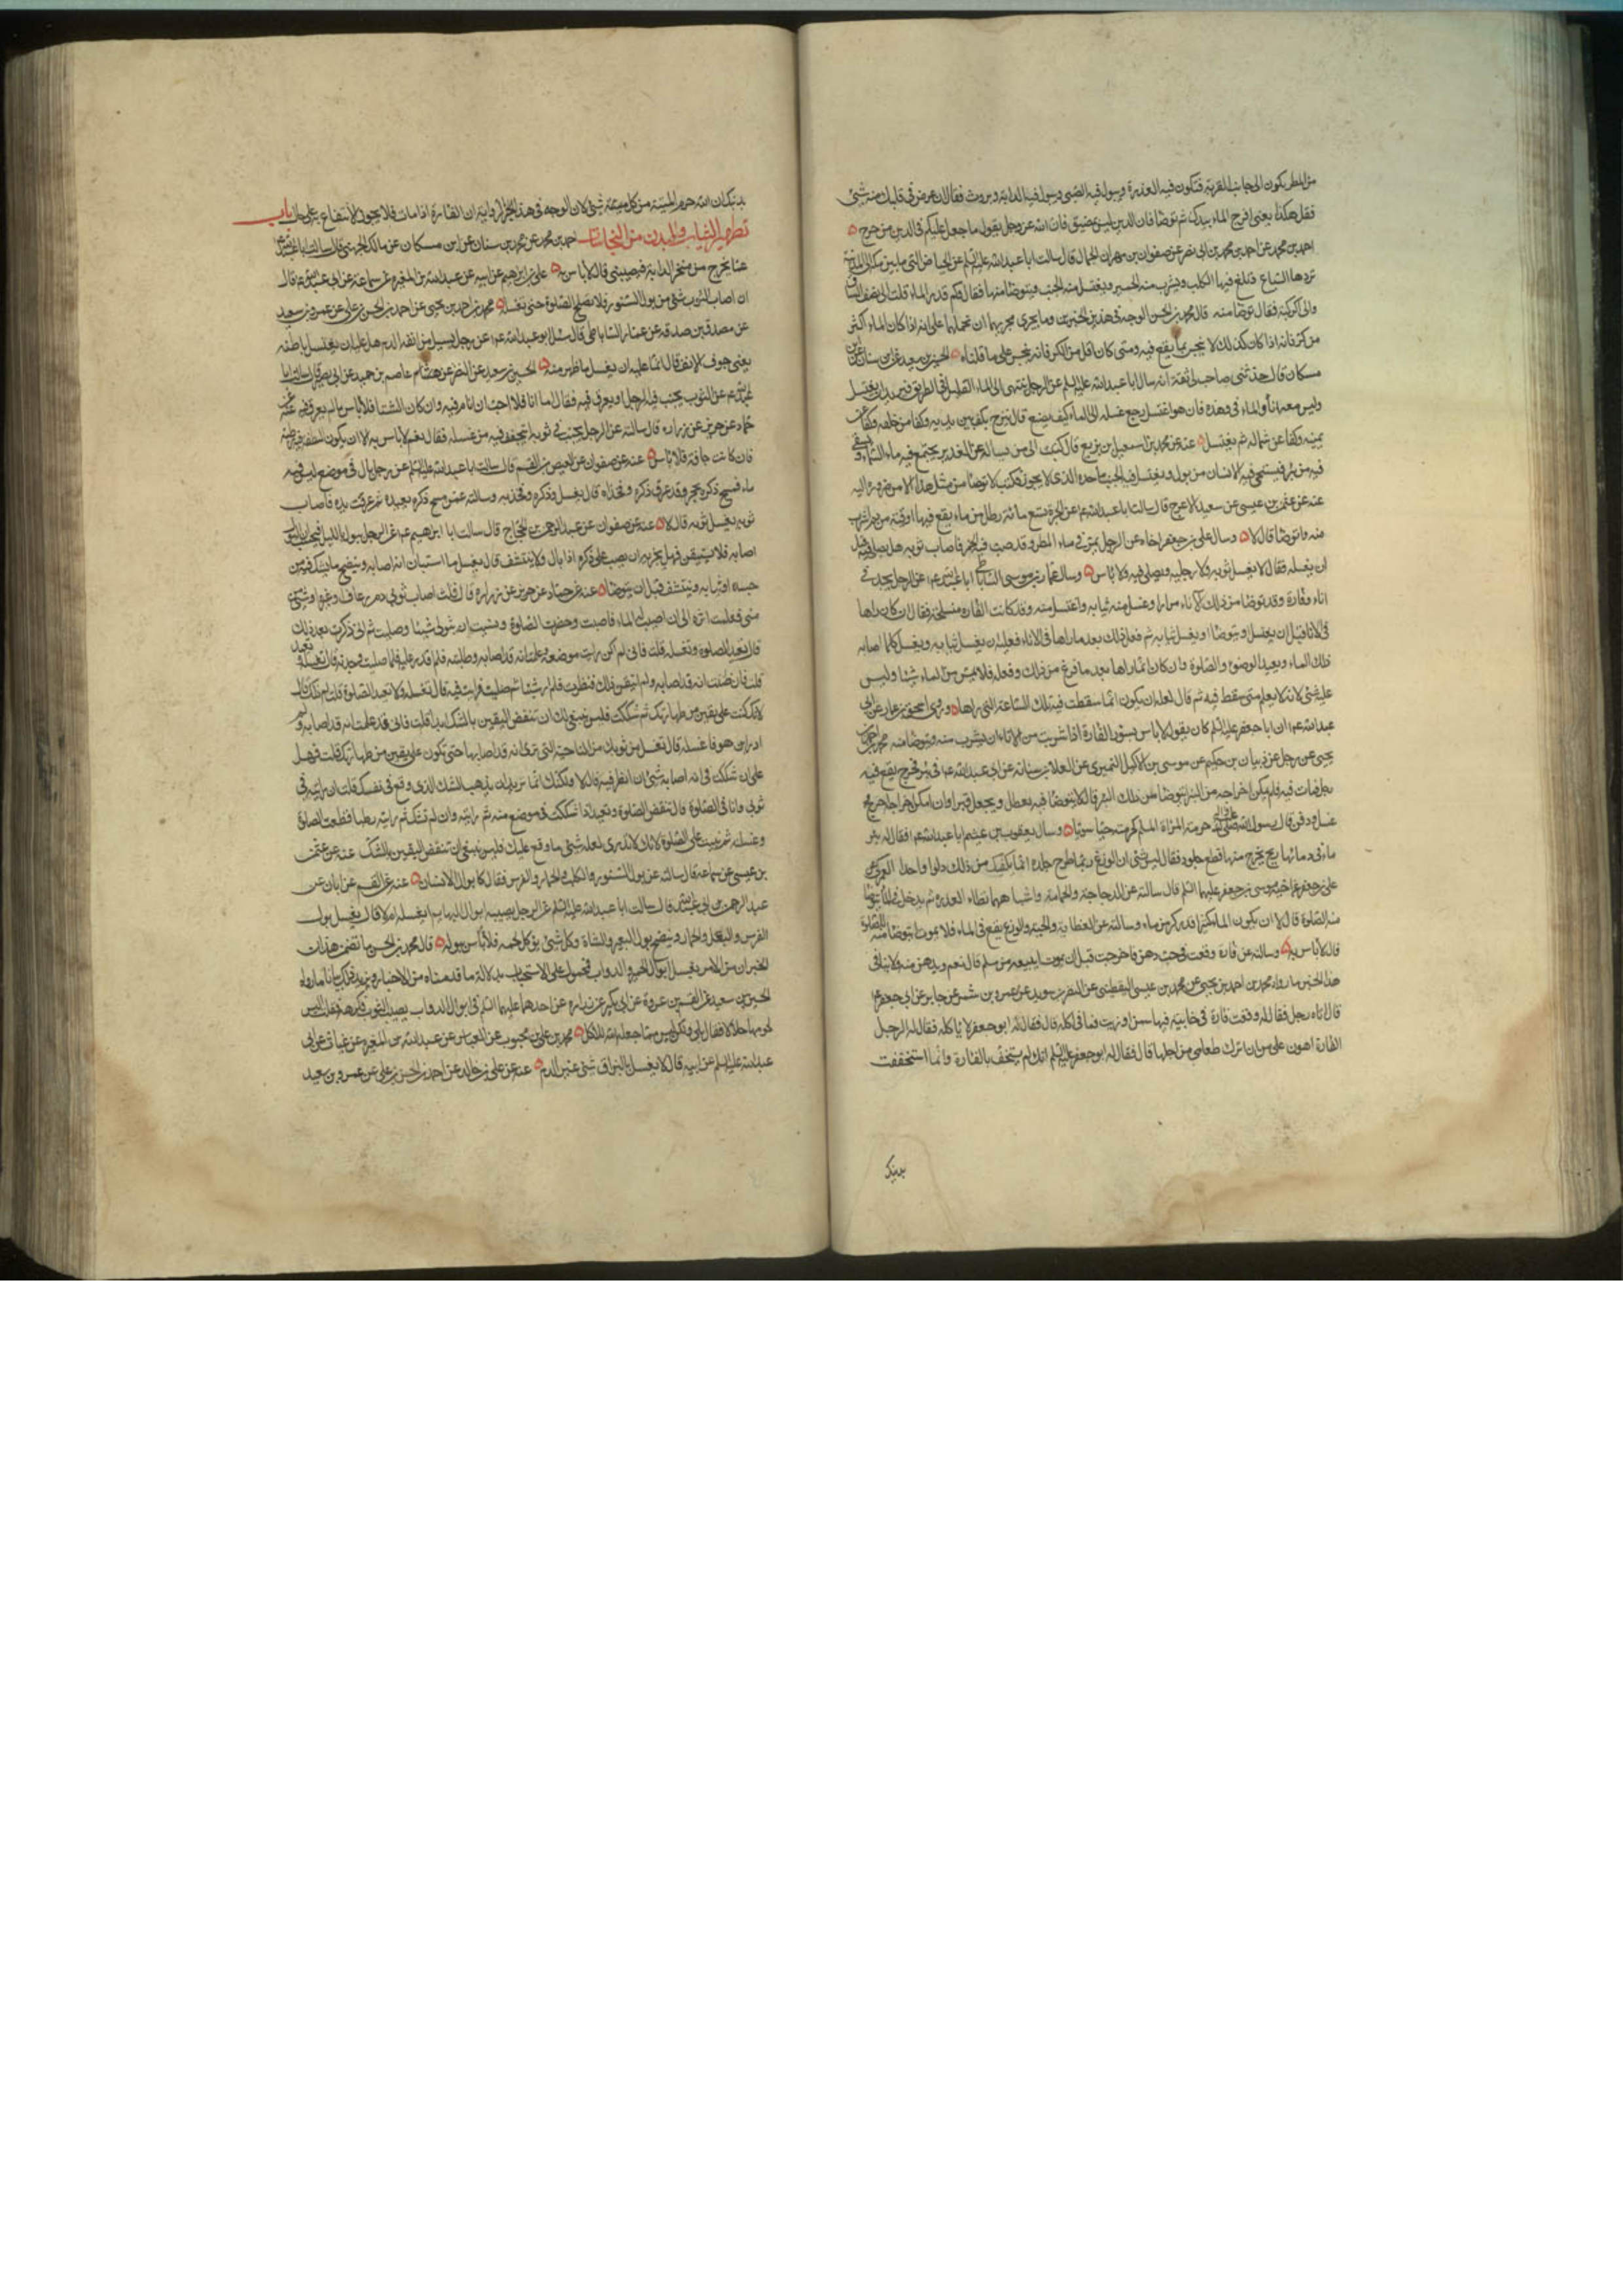 من المطر يكون الى جانب القرية فتكون فيه العذرة ويبول فيه الصبى ويبول فيه الدابة ويروث فقال ان عرض فى قلبك منه شئ
فقل هكذا يعنى افرج الماء بيدك ثم توضا فان الدين ليس بمضيق فان الله عز وجل يقول ما جعل عليكم فى الدين من حرج
احمد بن محمد عن احمد بن محمد بن ابى نصر عن صفوان بن مهران الجمال قال سالت ابا عبد الله عليه السلم عن الحياض التى ما بين مكة الى المدينة
تردها السباع وتلغ فيها الكلب ويشرب منه الحمير ويغتسل منه الجنب ويتوضا منها فقال وكم قدر الماء قلت الى نصف الساق
والى الركبة فقال توضا منه قال محمد بن الحسن الوجه فى هذين الخبرين وما يجرى مجريهما ان نحملهما على انه اذا كان الماء اكثر
من كر فانه اذا كان كذلك لا ينجس بما يقع فيه ومتى كان اقل من الكر فانه ينجس على ما قلناه الحسين بن سعيد عن ابن سنان عن ابن
مسكان قال حدثنى صاحب لى ثقة انه سال ابا عبد الله عليه السلم عن الرجل ينتهى الى الماء القليل فى الطريق فيريد ان يغتسل
وليس معه اناء والماء فى وهدة فان هو اغتسل رجع غسله الى الماء كيف يصنع قال ينضح بكف بين يديه وكفا من خلفه وكفا عن
يمينه وكفا عن شماله ثم يغتسل عنه عن محمد بن اسمعيل بن بزيع قال كتبت الى من يساله عن الغدير يجتمع فيه ماء السماء ويستقى
فيه من بئر فيستنجى فيه الانسان من بول او يغتسل فيه الجنب ما حده الذى لا يجوز فكتب لا توضا من مثل هذا الا من ضرورة اليه
عنه عن عثمن بن عيسى عن سعيد الاعرج قال سالت ابا عبد الله ع عن الجرة تسع مائة رطل من ماء يقع فيها اوقية من دم اشرب
منه واتوضا قال لا وسال على بن جعفر اخاه عن الرجل يمر فى ماء المطر وقد صبت فيه خمر فاصاب ثوبه هل يصلى فيه قبل
ان يغسله فقال لا يغسل ثوبه ولا رجليه ويصلى فيه ولا باس وسال عمار بن موسى الساباطى ابا عبد الله ع عن الرجل يجد فى
اناءه فارة وقد توضا من ذلك الاناء مرارا وغسل منه ثيابه واغتسل منه وقد كانت الفارة منسلخة فقال ان كان راها
فى الاناء قبل ان يغتسل او يتوضا او يغسل ثيابه ثم فعل ذلك بعد ما راها فى الاناء فعليه ان يغسل ثيابه ويغسل كلما اصابه
ذلك الماء ويعيد الوضوء والصلوة وان كان انما راها بعد ما فرغ من ذلك وفعله فلا يمس من الماء شيئا وليس
عليه شئ لانه لا يعلم متى سقط فيه ثم قال لعله ان يكون انما سقطت فيه تلك الساعة التى راها وروى اسحق بن عمار عن ابى
عبد الله ع ان ابا جعفر عليه السلم كان يقول لا باس بسؤر الفارة اذا شربت من الاناء ان يشرب منه ويتوضا منه محمد بن احمد بن
يحيى عن رجل عن ذبيان بن حكيم عن موسى بن الاكيل النميرى عن العلا بن سيابة عن ابى عبد الله ع فى بئر مخرج يقع فيه
رجل فمات فيه فلم يمكن اخراجه من البئر ايتوضا فى تلك البئر قال لا يتوضا فيه يعطل ويجعل قبرا وان امكن اخراجه اخرج و
غسل ودفن قال رسول الله صلى الله عليه واله حرمة المراة المسلم كحرمته حيا سويا وسال يعقوب بن عثيم ابا عبد الله ع فقال له بئر
ماء فى مائها ريح يخرج منها قطع جلود فقال ليس بشئ ان الوزغ ربما طرح جلده انما يكفيك من ذلك دلوا واحدا العمركى عن
على بن جعفر عن اخيه موسى بن جعفر عليهما السلم قال سالته عن الدجاجة والحمامة واشباههما تطاء العذرة ثم يدخل فى الماء ايتوضا
منه للصلوة قال لا ان يكون الماء كثيرا قدر كر من ماء وسالته عن العظاية والحية والوزغ يقع فى الماء فلا يموت ايتوضا منه للصلوة
قال لا باس به وسالته عن فارة وقعت فى حب دهن فاخرجت قبل ان يموت ايبيعه من مسلم قال نعم ويدهن منه ولا ينافى
هذا الخبر ما رواه محمد بن احمد بن يحيى عن محمد بن عيسى اليقطينى عن النضر بن سويد عن عمرو بن شمر عن جابر عن ابى جعفر ع
قال اتاه رجل فقال له وقعت فارة فى خابية فيها سمن او زيت فما ترى فى اكله قال فقال له ابو جعفر لا ياكله فقال له الرجل
الفارة اهون على من ان اترك طعامى من اجلها قال فقال له ابو جعفر عليه السلم انك لم يستخف بالفارة وانما استخففت
بدينك
بدينك ان الله حرم الميتة من كل شئ لان الوجه فى هذا الخبر الرواية ان الفارة اذا ماتت فلا يجوز الانتفاع به على حال باب
تطهير الثياب والبدن من النجاسات احمد بن محمد عن محمد بن سنان عن ابن مسكان عن مالك الجهنى قال سالت ابا عبد الله ع
عما يخرج من منخر الدابة فيصيبنى قال لا باس به على بن ابرهيم عن ابيه عن عبد الله بن المغيرة عن سماعة عن ابى عبد الله ع قال
ان اصاب الثوب شئ من بول السنور فلا يصلح الصلوة حتى يغسله محمد بن احمد بن يحيى عن احمد بن الحسن بن على عن عمرو بن سعيد
عن مصدق بن صدقة عن عمار الساباطى قال سئل ابو عبد الله ع عن رجل يسيل من انفه الدم هل عليه ان يغسل باطنه
يعنى جوف الانف فقال انما عليه ان يغسل ما ظهر منه الحسين بن سعيد عن النضر عن هشام عاصم بن حميد عن ابى بصير قال سالت ابا
عبد الله ع عن الثوب يجنب فيه الرجل ويعرق فيه فقال اما انا فلا احب ان انام فيه وان كان الشتا فلا باس ما لم يعرق فيه عنه عن
حماد عن حريز عن زرارة قال سالته عن الرجل يجنب فى ثوبه ايتجفف فيه من غسله فقال نعم لا باس به الا ان يكون النطفة فيه رطبة
فان كانت جافة فلا باس عنه عن صفوان عن العيص بن القسم قال سالت ابا عبد الله عليه السلم عن رجل بال فى موضع ليس فيه
ماء فمسح ذكره بحجر وقد عرق ذكره وفخذاه قال يغسل ذكره وفخذيه وسالته عمن مسح ذكره بيده ثم عرقت يده فاصاب
ثوبه يغسل ثوبه قال لا عنه عن صفوان عن عبد الرحمن بن الحجاج قال سالت ابا ابرهيم ع عن الرجل يبول بالليل فيحسب ان البول
اصابه فلا يستيقن فهل يجزيه ان يصب على ذكره اذا بال ولا يتنشف قال يغسل ما استبان انه اصابه وينضح ما يشك فيه من
جسده او ثيابه ويتنشف قبل ان يتوضا عنه عن حماد عن حريز عن زرارة قال قلت اصاب ثوبى دم رعاف او غيره او شئ من
منى فعلمت اثره الى ان اصيب له الماء فاصبت وحضرت الصلوة ونسيت ان بثوبى شيئا وصليت ثم انى ذكرت بعد ذلك
قال تعيد الصلوة وتغسله قلت فانى لم اكن رايت موضعه وعلمت انه قد اصابه وطلبته فلم اقدر عليه فلما صليت وجدته قال تغسله وتعيد
قلت فان ظننت انه قد اصابه ولم اتيقن ذلك فنظرت فلم ار شيئا ثم صليت فرايت فيه قال تغسله ولا تعيد الصلوة قلت لم ذلك قال
لانك كنت على يقين من طهارتك ثم شككت فليس ينبغى لك ان تنقض اليقين بالشك ابدا قلت فانى قد علمت انه قد اصابه ولم
ادر اين هو فاغسله قال تغسل من ثوبك من الناحية التى ترى انه قد اصابها حتى تكون على يقين من طهارتك قلت فهل
على ان شككت فى انه اصابه شئ ان انظر فيه قال لا ولكنك انما تريد ان يذهب الشك الذى وقع فى نفسك قلت ان رايته فى
ثوبى وانا فى الصلوة قال تنقض الصلوة وتعيد اذا شككت فى موضع منه ثم رايته وان لم تشك ثم رايته رطبا قطعت الصلوة
وغسلته ثم بنيت على الصلوة لانك لا تدرى لعله شئ ما وقع عليك فليس ينبغى ان تنقض اليقين بالشك عنه عن عثمن
بن عيسى عن سماعة قال سالته عن بول السنور والكلب والحمار والفرس فقال كابوال الانسان عنه عن القسم عن ابان عن
عبد الرحمن بن ابى عبد الله قال سالت ابا عبد الله عليه السلم عن الرجل يصيبه ابوال البهايم ايغسله ام لا قال يغسل بول
الفرس والبغل والحمار وينضح بول البعير والشاة وكل شئ يوكل لحمه فلا باس ببوله قال محمد بن الحسن ما تضمن هذان
الخبران من الامر بغسل ابوال الحمير والدواب فمحمول على الاستحباب بدلالة ما قدمناه من الاخبار ويزيد ذلك بيانا ما رواه
الحسين بن سعيد عن القسم بن عروة عن ابن بكير عن زرارة عن احدهما عليهما السلم فى ابوال الدواب يصيب الثوب فكرهه فقلت اليس
لحومها حلالا فقال بلى ولكن ليس مما جعله الله للاكل محمد بن على بن محبوب عن العباس عن عبد الله بن المغيرة عن غياث عن ابى
عبد الله عليه السلم عن ابيه قال لا يغسل بالبزاق شئ غير الدم عنه عن على بن خالد عن احمد بن الحسن بن على عن عمرو بن سعيد